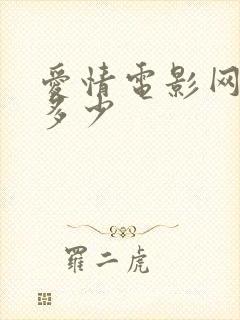 愛情電影网
多少
羅二虎